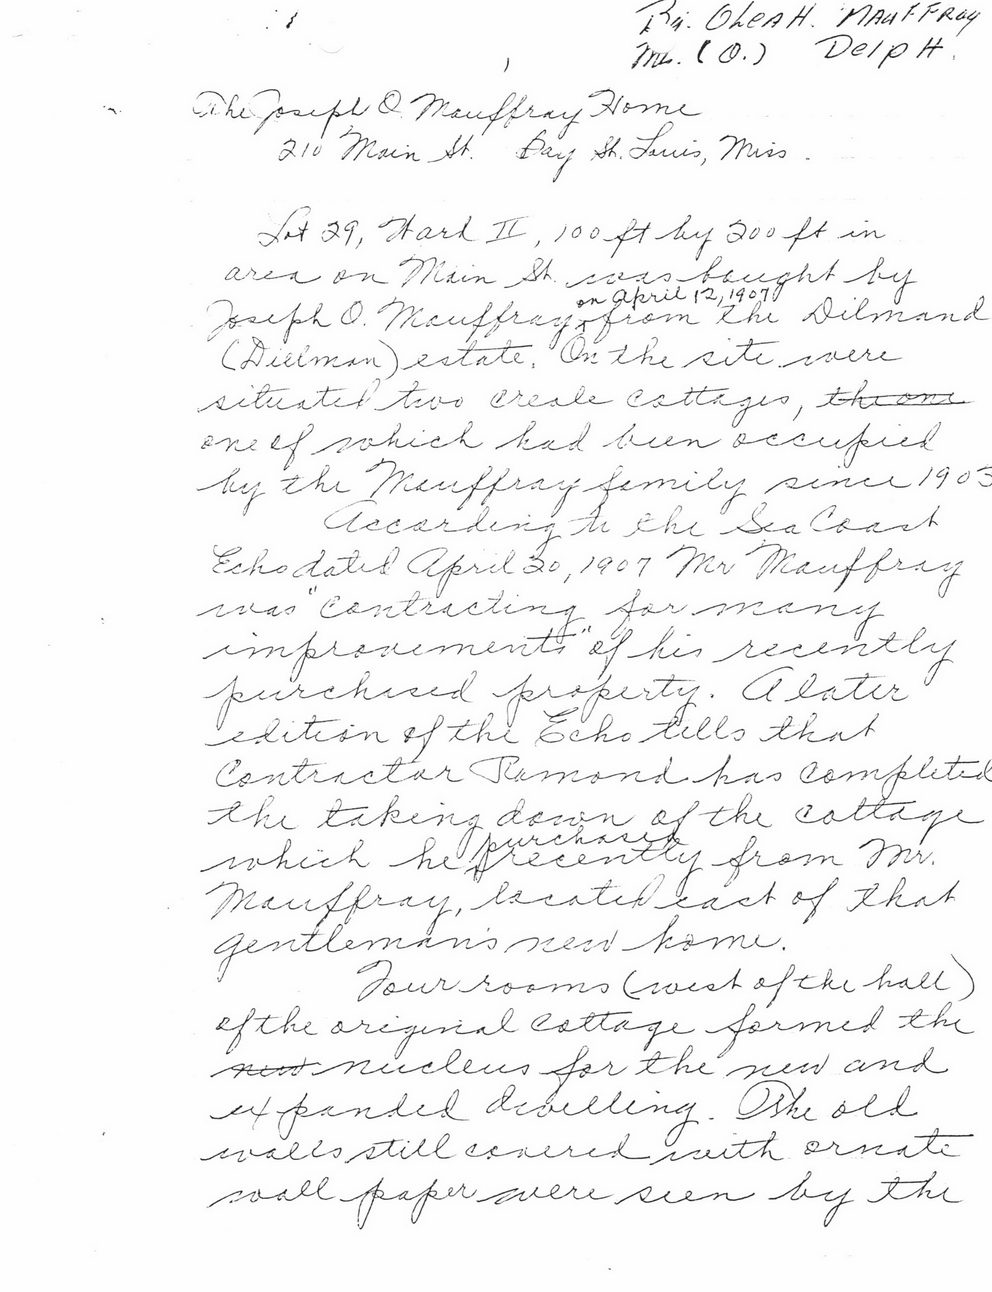 By. OLEA H. MAUFFRAY
Ms. (O.) DelpH.
The Joseph O. Mauffray Home
210 Main St. Bay St. Louis, Miss.
Lot 29, Ward II, 100 ft by 200 ft in
area on Main St. was bought by
on April 12, 1907
Joseph O. Mauffray from the Dilmand
(Dillman) estate. On the site were
situated two creole cottages, the one
one of which had been occupied
by the Mauffray family since 1903
According to the Sea Coast
Echo dated April 20, 1907 Mr Mauffray
was "contracting for many
improvements" of his recently
purchased property. A later
edition of the Echo tells that
Contractor Ramond has completed
the taking down of the cottage
purchased
which he recently from Mr.
Mauffray, located east of that
gentleman's new home.
Four rooms (west of the hall)
of the original cottage formed the
new nucleus for the new and
expanded dwelling. The old
walls still covered with ornate
wall paper were seen by the